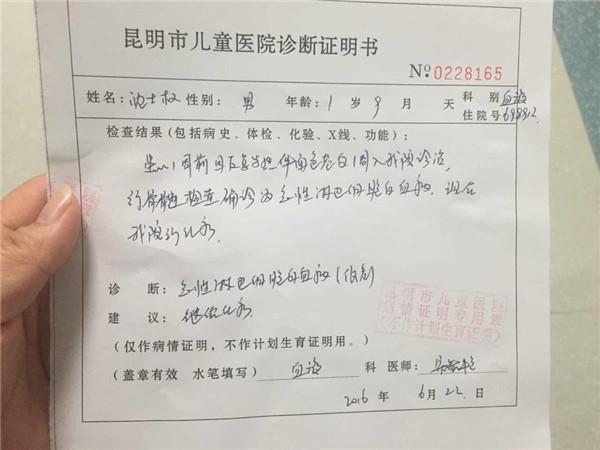 昆明市儿童医院诊断证明书
No. 0228165
姓名: 性别: 男 年龄: 1 岁 9 月 天 科别
住院号
检查结果(包括病史、体检、化验、X线、功能):
患儿1周前因反复发热伴面色苍白1周入我院诊治,
行骨髓检查确诊为急性淋巴细胞白血病.现在
我院行化疗.
诊 断: 急性淋巴细胞白血病
建 议: 继续化疗
(仅作病情证明,不作计划生育证明用。)
(盖章有效 水笔填写) 科 医师:
2016 年 6 月 22 日
昆明市儿童医院
病情证明专用章
(不作计划生育证明)